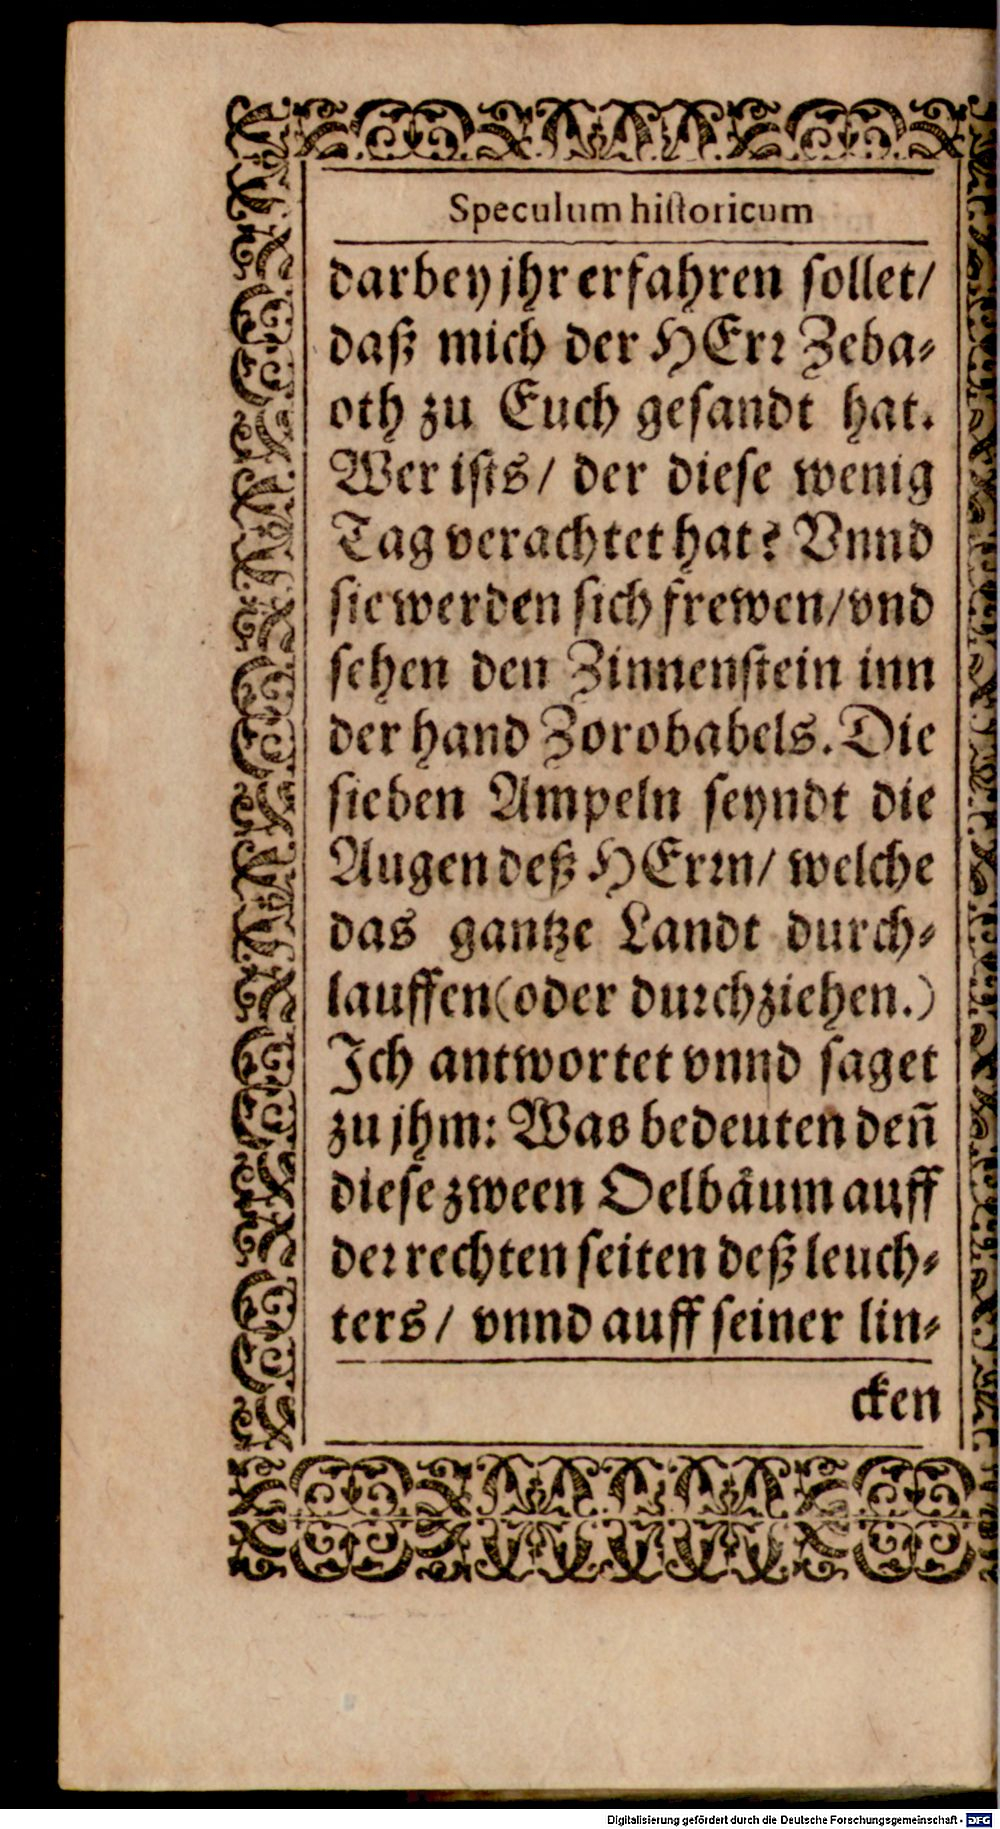 Speculum hiſtoricum
darbey jhr erfahren ſollet/
daß mich der HErꝛ Zeba⸗
oth zu Euch geſandt hat.
Wer iſts/ der dieſe wenig
Tag verachtet hat? Vnnd
ſie werden ſich frewen/ vnd
ſehen den Zinnenſtein inn
der hand Zorobabels. Die
ſieben Ampeln ſeyndt die
Augen deß HErꝛn/ welche
das gantze Landt durch⸗
lauffen (oder duꝛchziehen.)
Jch antwortet vnnd ſaget
zu jhm: Was bedeuten deñ
dieſe zween Oelbaͤum auff
deꝛ rechten ſeiten deß leuch⸗
ters/ vnnd auff ſeiner lin⸗
cken
Digitalisierung gefördert durch die Deutsche Forschungsgemeinschaft - DFG